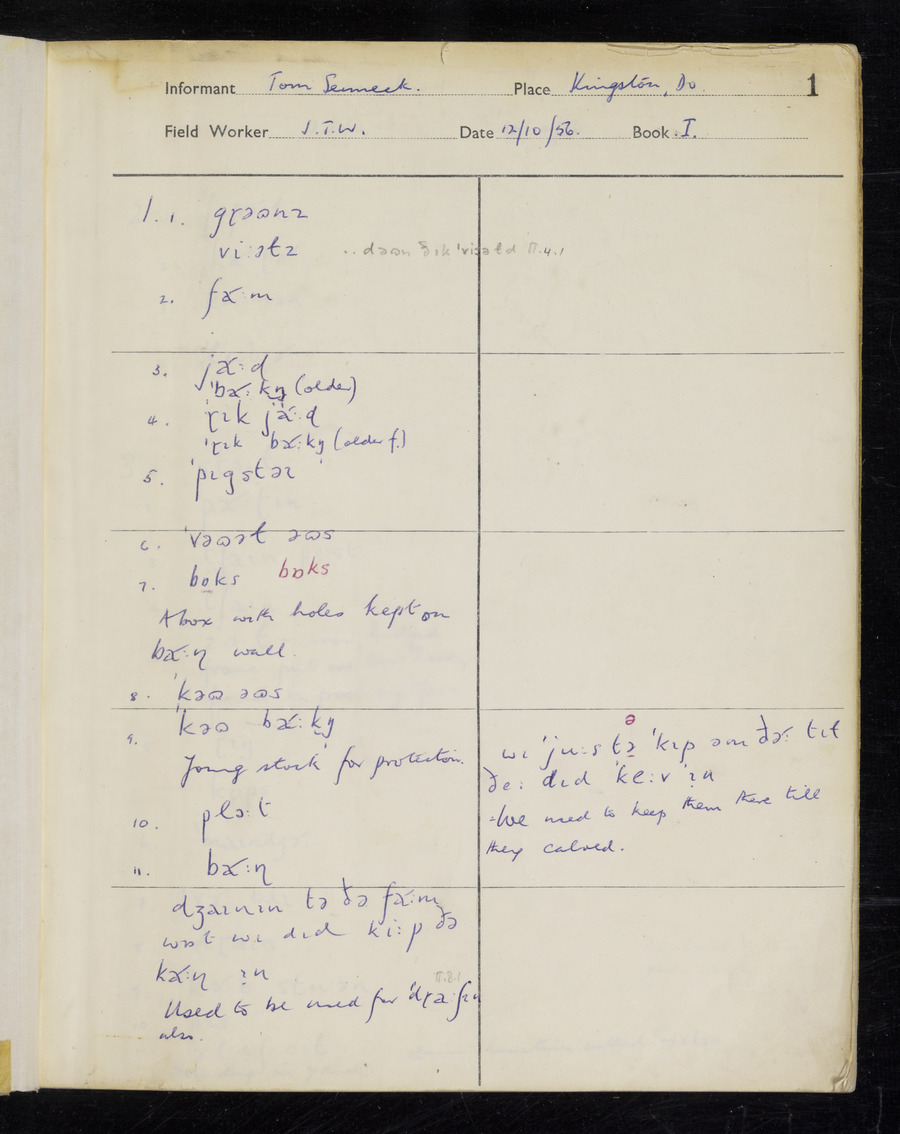 Informant Tom Senneck. Place Kingston, Do. 1
Field Worker J.T.W. Date 12/10/56. Book I.
1. 1. gɽəɷnz
vi:ətz .. dəɷn ðɪk 'viəɫd II.4.1
2. fæ:m
3. jæ:d
'bæ:kŋ (older)
4. 'ɽɪk jæ:d
'ɽɪk bæ:kŋ (older f.)
5. 'pɪgstəɪ
6. 'vəɷəɫ əɷs
7. bɒks bɒks
A box with holes kept on
bæ:ɳ wall.
8. 'kəɷ əɷs
9. 'kəɷ bæ:kŋ
Young stock for protection.
wi 'ju:s tə 'kɪp əm ðə: tɪɫ
ə
ðe: dɪd 'ke:v ɪn
=We used to keep them there till
they calved.
10. plɔ:t
11. bæ:ɳ
dʒəɪnɪn tə ðə fæ:m
wɒt wi dɪd ki:p ðə
kæ:ɳ ɪn
II.8.1
Used to be used for 'dɽæ:ʃɪn
also.